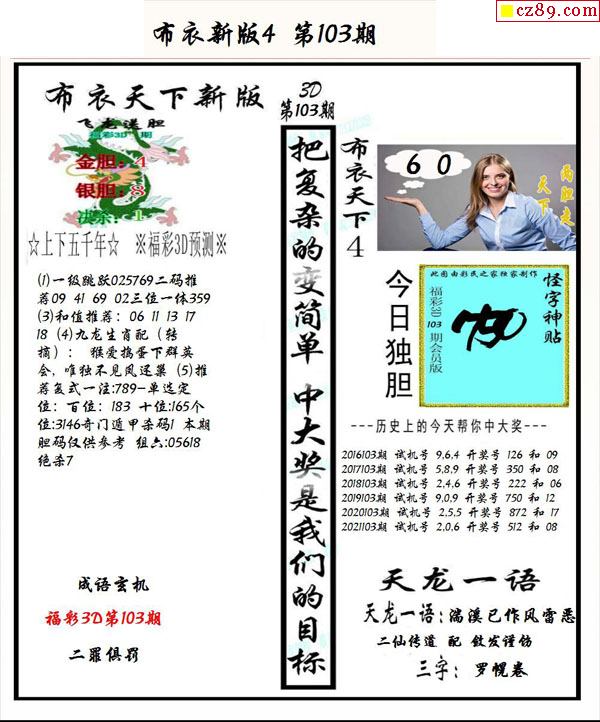 cz89.com
布衣新版4 第103期
布衣天下新版
飞龙送胆
福彩3D 期
金胆：4
银胆：8
决杀：1
☆上下五千年☆ ※福彩3D预测※
(1)一级跳跃025769二码推
荐09 41 69 02三位一体359
(3)和值推荐：06 11 13 17
18 (4)九龙生肖配（转
摘）：猴爱捣蛋下群英
会，唯独不见凤还巢 (5)推
荐复式一注:789-单选定
位：百位：183 十位:165个
位:3146奇门遁甲杀码1 本期
胆码仅供参考 组六:05618
绝杀7
成语玄机
福彩3D第103期
二罪俱罚
3D
第103期
把复杂的变简单 中大奖是我们的目标
布衣天下4
6 0
两胆走
天下
今日独胆
此图由彩民之家独家制作
福彩3D 103 期会员版
怪字神贴
750
---历史上的今天帮你中大奖---
2016103期 试机号 9.6.4 开奖号 126 和 09
2017103期 试机号 5.8.9 开奖号 350 和 08
2018103期 试机号 2.4.6 开奖号 222 和 06
2019103期 试机号 9.0.9 开奖号 750 和 12
2020103期 试机号 2.5.5 开奖号 872 和 17
2021103期 试机号 2.0.6 开奖号 512 和 08
天龙一语
天龙一语：湍溪已作风雷恶
二仙传道 配 敛发谨饬
三字： 罗幌卷